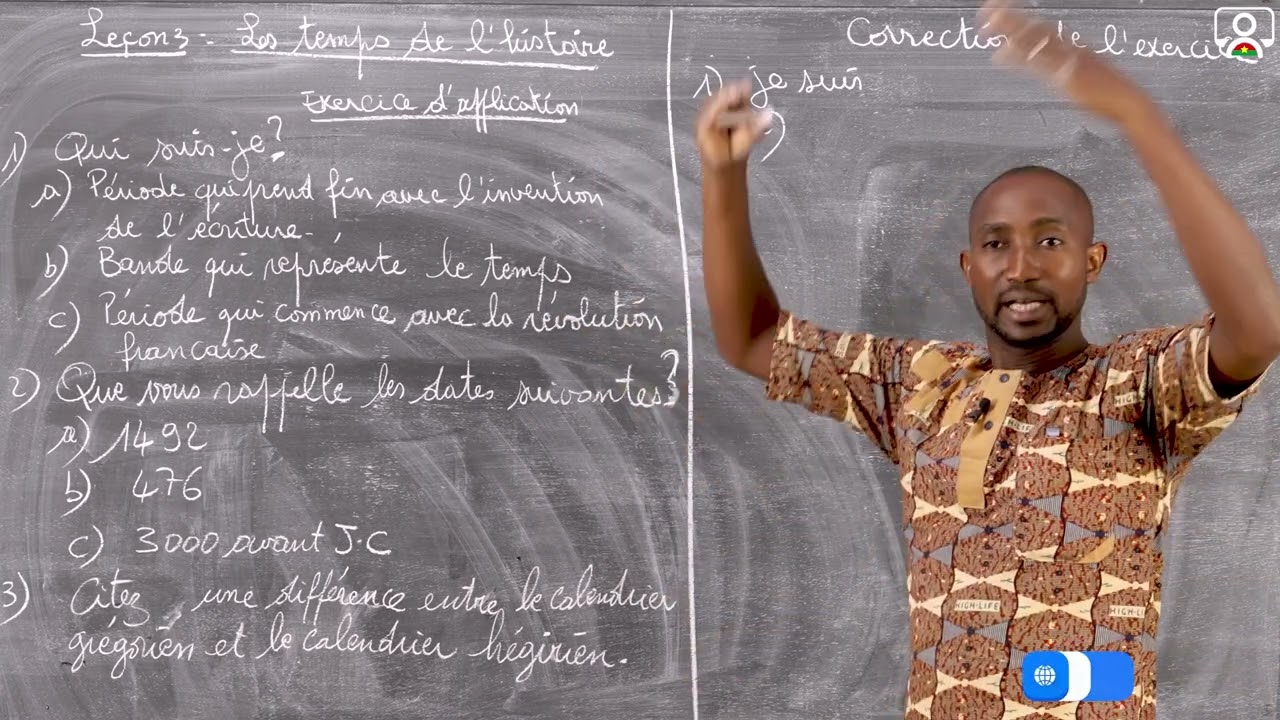 Leçon 3 : Les temps de l'histoire
Exercice d'application
1) Qui suis-je ?
a) Période qui prend fin avec l'invention
de l'écriture.
b) Bande qui représente le temps
c) Période qui commence avec la révolution
francaise
2) Que vous rappelle les dates suivantes ?
a) 1492
b) 476
c) 3000 avant J.C
3) Citez une différence entre le calendrier
grégorien et le calendrier hégirien.
Correction de l'exercice
1) je suis
HIGH-LIFE
HIGH-LIFE